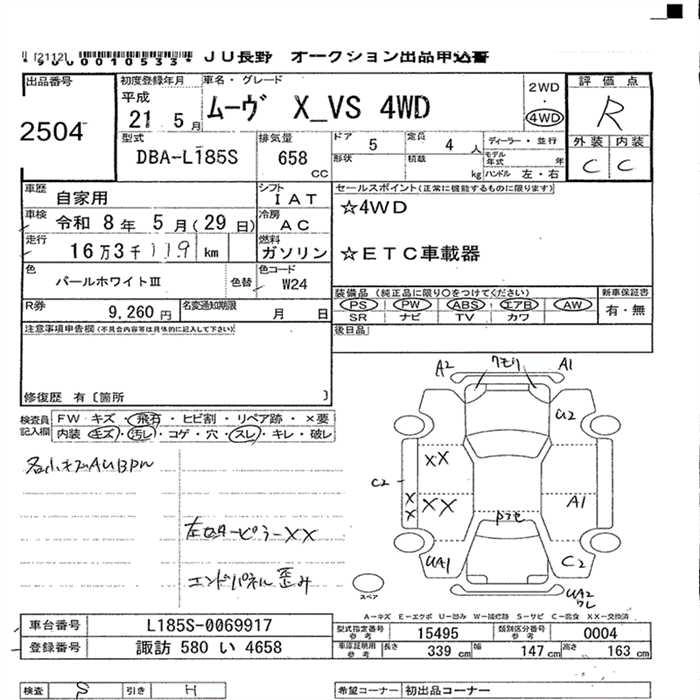 [2112] *900010533* JU長野 オークション出品申込書
出品番号 2504
初度登録年月 平成 21年 5月
車名・グレード ムーヴ X_VS 4WD
2WD・4WD
評価点 R
外装 C 内装 C
型式 DBA-L185S
排気量 658 CC
ドア 5 定員 4 人
形状 積載 kg
ディーラー・並行
モデル年式 年
ハンドル 左・右
車歴 自家用
シフト IAT
車検 令和 8年 5月(29日)
冷房 AC
走行 16万3千119 km
燃料 ガソリン
色 パールホワイトⅢ 色替
色コード W24
R券 9,260円
名変通知期限 月 日
セールスポイント(正常に機能するものに限ります)
☆4WD
☆ETC車載器
装備品 (純正品に限り○をつけてください)
PS PW ABS エアB AW
SR ナビ TV カワ
新車保証書 有・無
後日品
注意事項申告欄(不具合内容等は具体的に記入して下さい)
修復歴 有〔箇所 〕
検査員記入欄
FW キズ・飛石・ヒビ割・リペア跡・×要
内装 キズ・汚レ・コゲ・穴・スレ・キレ・破レ
左センターピラーXX
エンドパネル歪み
A2 クモリ A1
U2
XX
C2
XX
XX
A1
UA1
C2
UA2
ワレ
スペア
A-キズ E-エクボ U-凹み W-補修跡 S-サビ C-腐食 XX-交換済
車台番号 L185S-0069917
登録番号 諏訪 580 い 4658
型式指定番号 参考 15495
類別区分番号 参考 0004
車庫証明用 参考 長さ 339 cm 幅 147 cm 高さ 163 cm
検査 引き H
希望コーナー 初出品コーナー